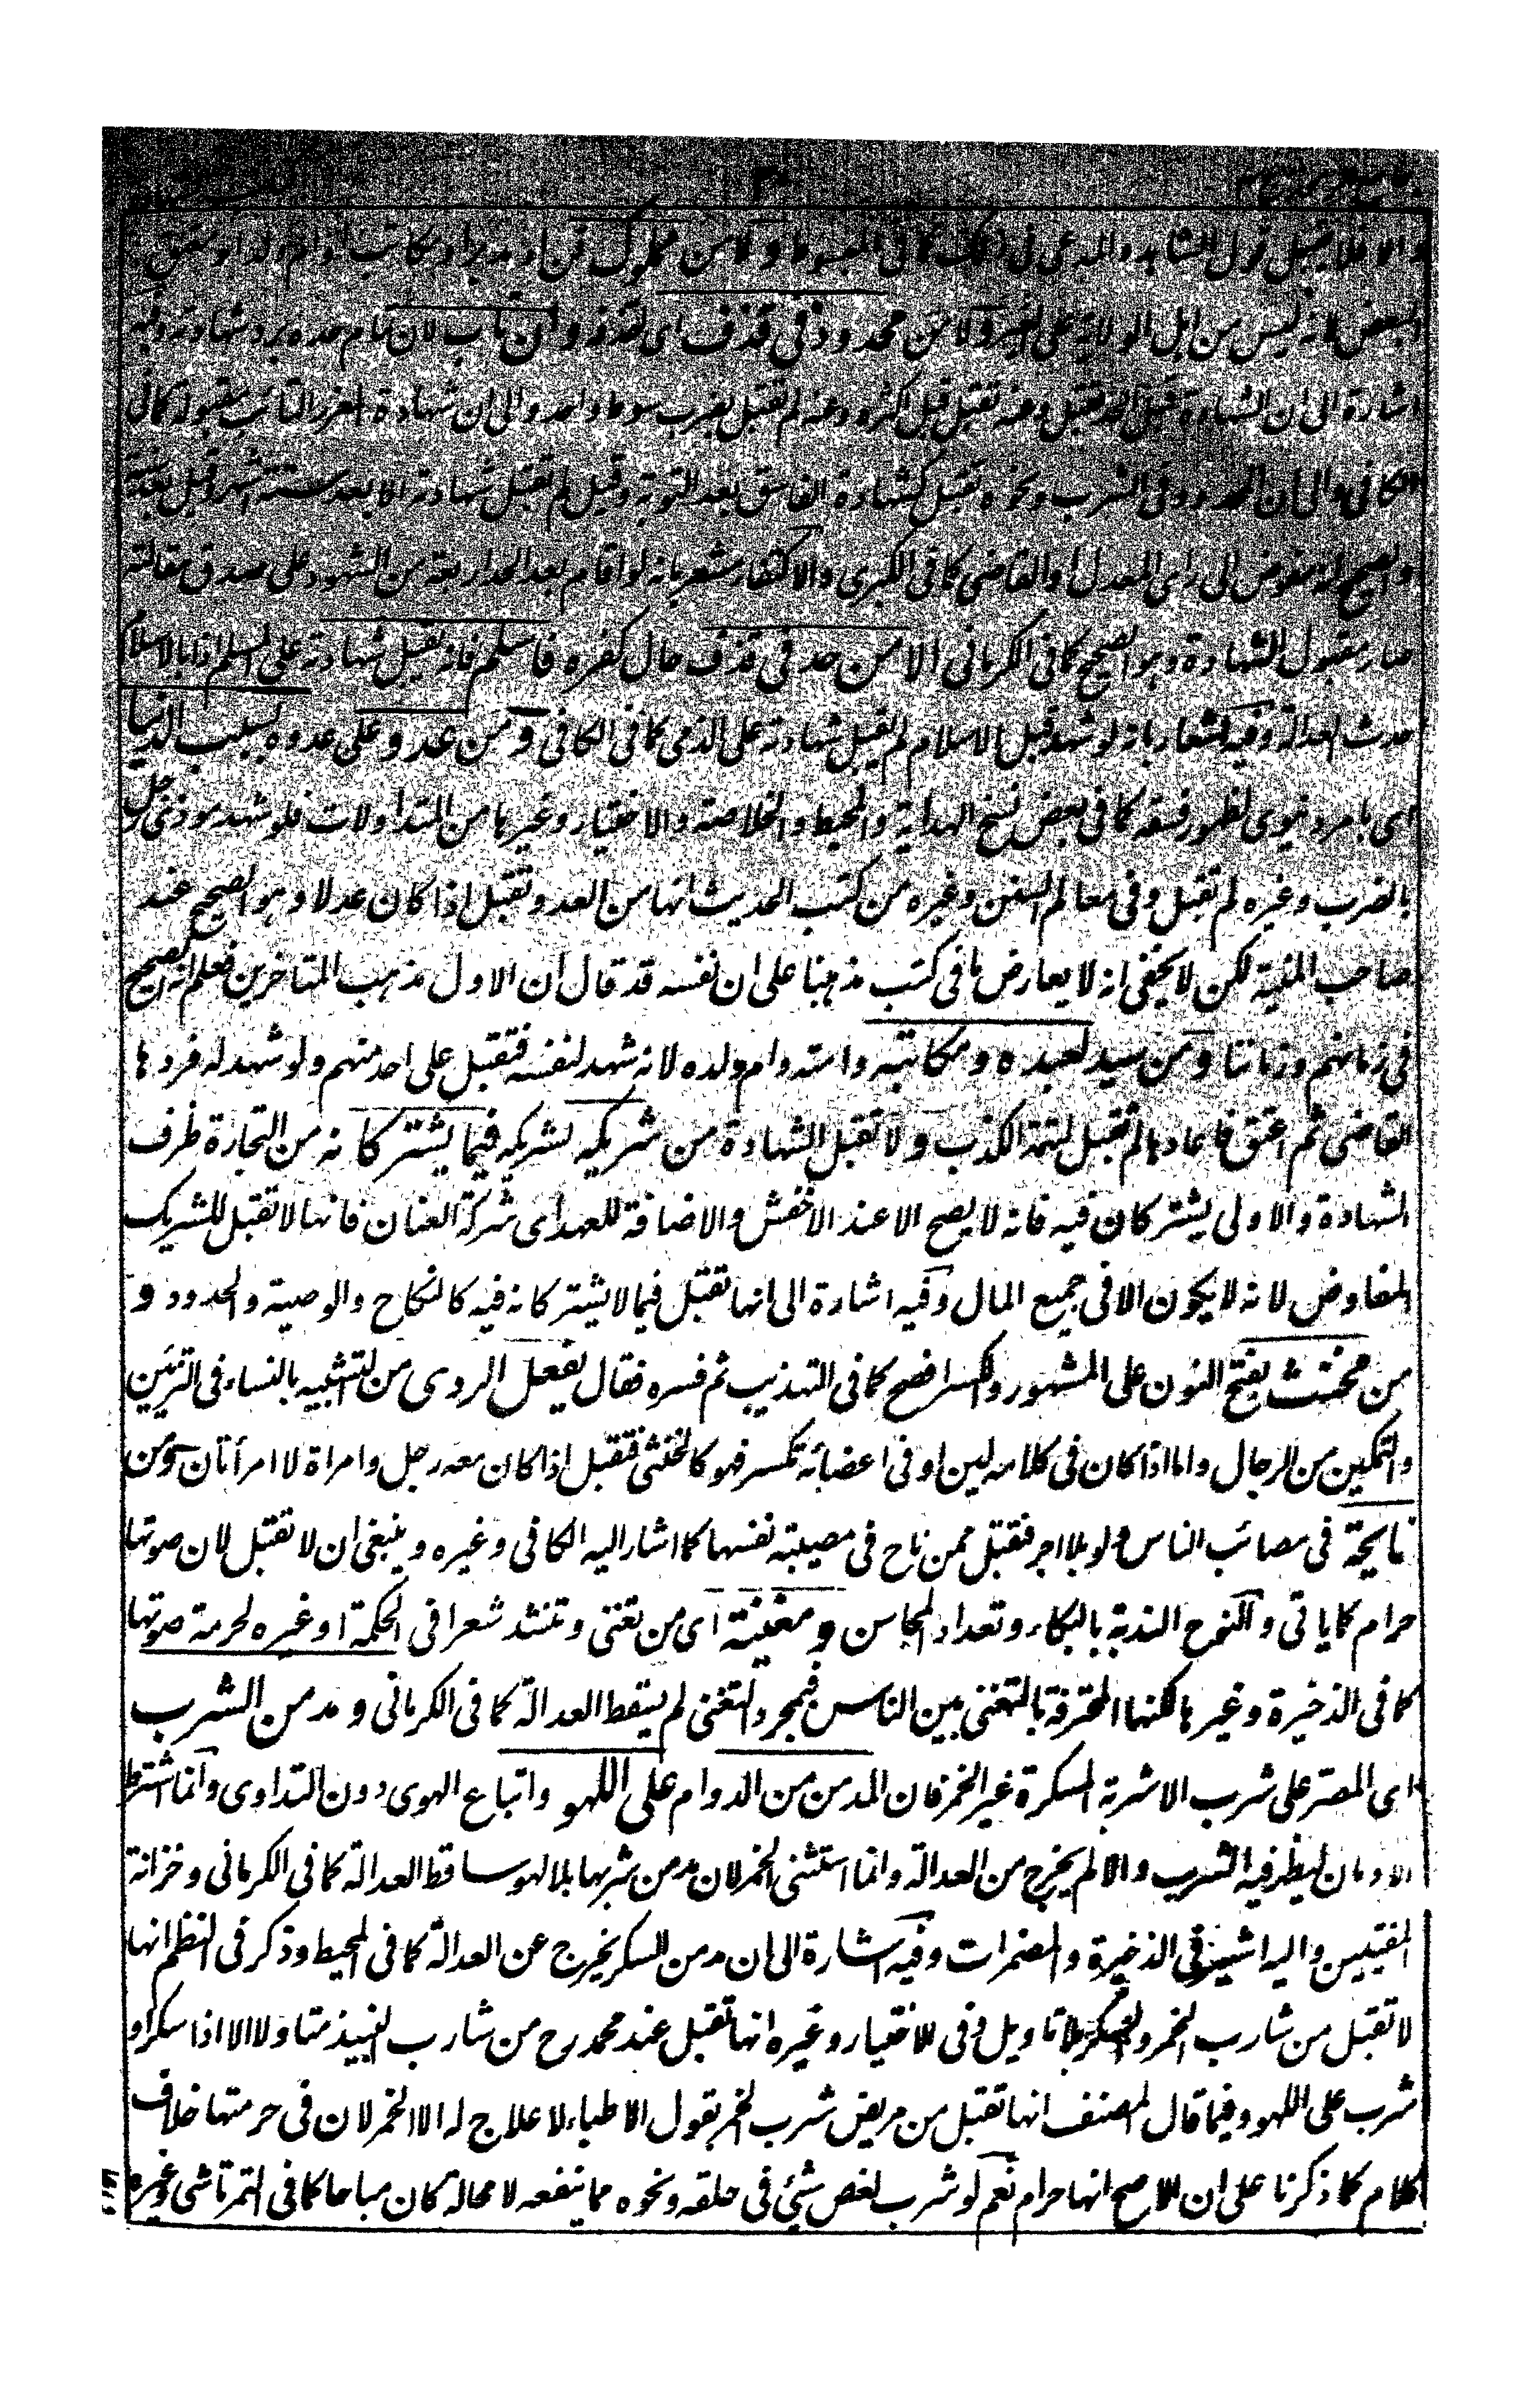 والا فلا يقبل قول الشاهد والمدعى فى ذلك كما فى المبسوط ولا من مملوك قن او مدبر او مكاتب او ام ولد او معتق
البعض لانه ليس من اهل الولاية على الغير ولا من محدود فى قذف اى لقذفه وان تاب لان تمام حده برد شهادته وفيه
اشارة الى ان الشهادة قبل الحد تقبل وعنه تقبل قبل اكثره وعنه لم تقبل بضرب سوط واحد والى ان شهادة المعزر التائب مقبولة كما فى
الكافى والى ان المحدود فى الشرب ونحوه تقبل كشهادة الفاسق بعد التوبة وقيل لم تقبل شهادته الا بعد ستة اشهر وقيل بعد سنة
والصحيح انه مفوض الى راى المعدل او القاضى كما فى الكبرى والاكتفاء مشعر بانه لو اقام بعد الحد اربعة من الشهود على صدق مقالته
صار مقبول الشهادة وهو الصحيح كما فى الكرمانى الا من حد فى قذف حال كفره فاسلم فانه تقبل شهادته على المسلم اذا بالاسلام
حدث العدالة وفيه اشعار بانه لو شهد قبل الاسلام لم تقبل شهادته على الذمى كما فى الكافى ومن عدو على عدوه بسبب الدنيا
اى بامر دنيوى لظهور فسقه كما فى بعض نسخ الهداية والمحيط والخلاصة والاختيار وغيرها من المتداولات فلو شهد موذى رجل
بالضرب وغيره لم تقبل وفى معالم السنن وغيره من كتب الحديث انها من العدو تقبل اذا كان عدلا وهو الصحيح عند
صاحب المنية لكن لا يخفى انه لا يعارض ما فى كتب مذهبنا على ان نفسه قد قال ان الاول مذهب المتاخرين فعلم انه الصحيح
فى زمانهم وزماننا ومن سيد لعبده ومكاتبه وامته وام ولده لانه شهد لنفسه فتقبل على احد منهم ولو شهد له فردها
القاضى ثم اعتق فاعادها لم تقبل لتهمة الكذب ولا تقبل الشهادة من شريكه لشريكه فيما يشتركانه من التجارة ظرف
الشهادة والاولى يشتركان فيه فانه لا يصح الا عند الاخفش والاضافة للعهد اى شركة العنان فانها لا تقبل للشريك
المفاوض لانه لا يكون الا فى جميع المال وفيه اشارة الى انها تقبل فيما لا يشتركانه فيه كالنكاح والوصية والحدود و
من مخنث بفتح النون على المشهور والكسر افصح كما فى التهذيب ثم فسره فقال لفعل الردى من التشبيه بالنساء فى التزين
والتمكين من الرجال واما اذا كان فى كلامه لين او فى اعضائه تكسر فهو كالخنثى فتقبل اذا كان معه رجل وامراة لا امرأتان ومن
نايحة فى مصائب الناس ولو بلا اجر فتقبل ممن ناح فى مصيبته نفسها كما اشار اليه الكافى وغيره وينبغى ان لا تقبل لان صوتها
حرام كما ياتى والنوح الندبة بالبكاء وتعداد المحاسن ومغنية اى من تغنى وتنشد شعرا فى الحكمة او غيره لحرمة صوتها
كما فى الذخيرة وغيرها لكنها المحترفة بالتغنى بين الناس فبمجرد التغنى لم يسقط العدالة كما فى الكرمانى ومدمن الشرب
اى المصر على شرب الاشربة المسكرة غير الخمر فان المدمن من الدوام على اللهو واتباع الهوى دون التداوى وانما اشترط
الادمان ليظهر فيه الشرب والا لم يخرج من العدالة وانما استثنى الخمر لان مدمن شربها بلا لهو ساقط العدالة كما فى الكرمانى وخزانة
المفتيين واليه اشير فى الذخيرة والمضمرات وفيه اشارة الى ان مدمن السكر يخرج عن العدالة كما فى المحيط وذكر فى النظم انها
لا تقبل من شارب الخمر والسكر بلا تاويل وفى الاختيار وغيره انها تقبل عند محمد رح من شارب النبيذ متاولا الا اذا سكر او
شرب على اللهو وفيما قال المصنف انها تقبل من مريض شرب الخمر بقول الاطباء لا علاج له الا الخمر لان فى حرمتها خلاف
كلام كما ذكرنا على ان الاصح انها حرام نعم لو شرب لغص شئ فى حلقه ونحوه مما ينفعه لا محالة كان مباحا كما فى التمرتاشى وغيره